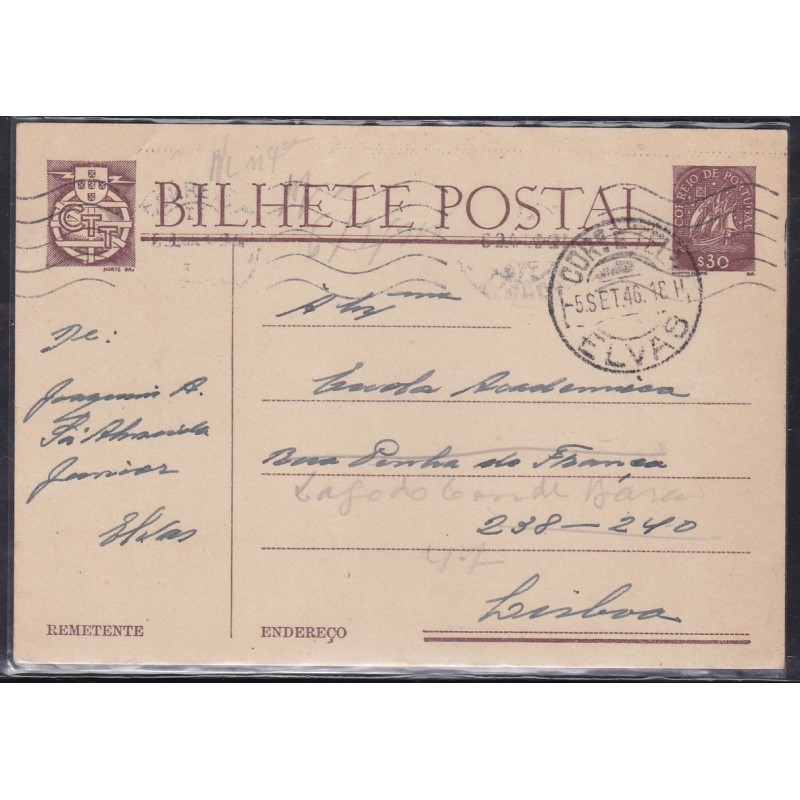 CTT
BILHETE POSTAL
CORREIO DE PORTUGAL
$30
CORR. E TEL.
-5.SET.46.18H
ELVAS
De:
Joaquim A.
Sá Almeida
Junior
Elvas
REMETENTE
À
Escola Academica
Rua Penha de França
Largo do Conde Barão
238-240
47
Lisboa
ENDEREÇO